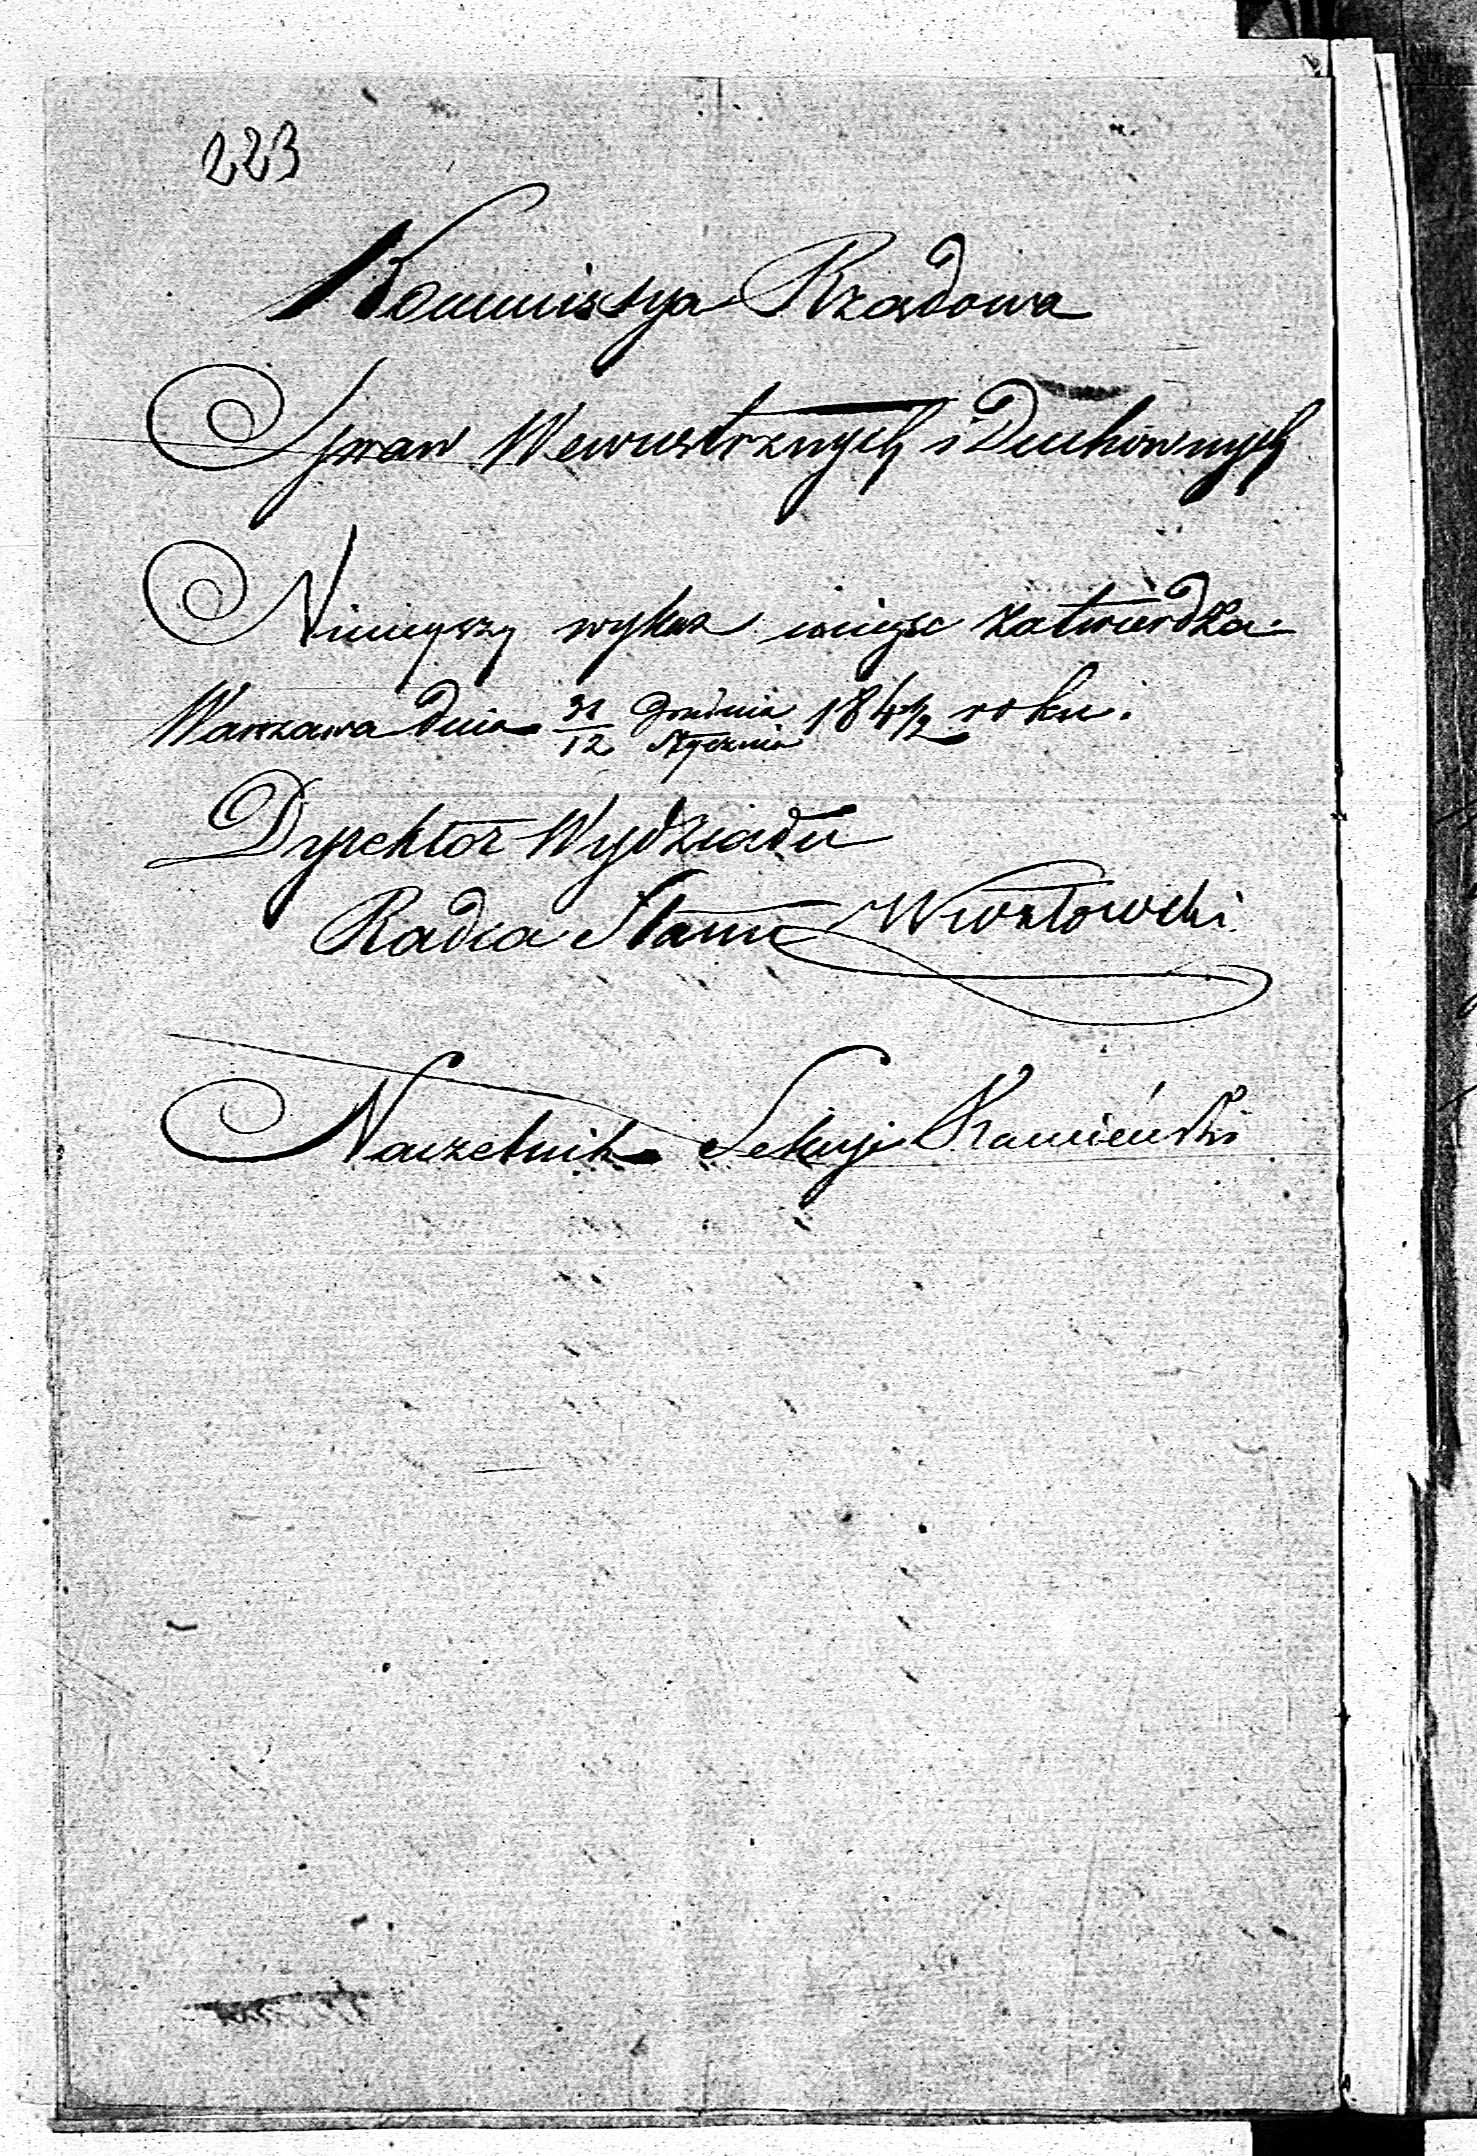 223
Kommissya Rządowa
Spraw Wewnętrznych i Duchownych
Ninieyszy wykaz mieysc zatwierdza.
Warszawa dnia 31/12 Grudnia/Stycznia 1841/2 roku.
Dyrektor Wydziału
Radca Stanu
Naczelnik Sekcyi Kamieński